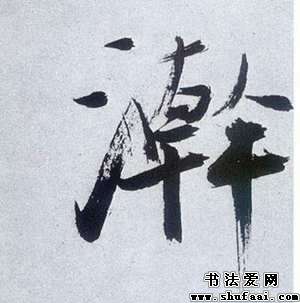 澣
书法爱网
www.shufaai.com